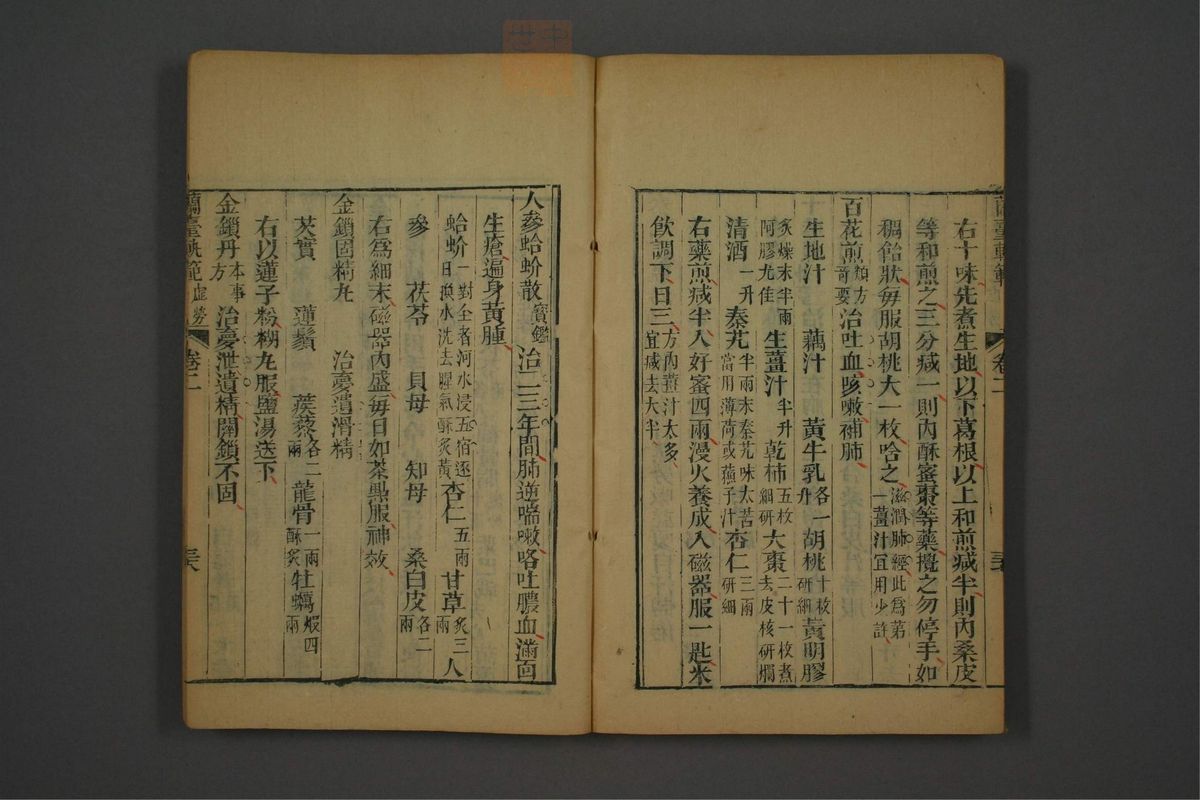 右十味先煮生地以下葛根以上和煎減半則內桑皮
等和煎之三分減一則內酥蜜棗等藥攪之勿停手如
稠飴狀每服胡桃大一枚唅之滋潤肺經此為第一薑汁宜用少許
百花煎類方奇要治吐血咳嗽補肺
生地汁 藕汁 黃牛乳各一升胡桃十枚研細黃明膠
炙燥末半兩阿膠尤佳生薑汁半升乾柿五枚細研大棗二十一枚煮去皮核研爛
清酒一升秦艽半兩末秦艽味太苦當用薄荷或蘇子汁杏仁三兩研細
右藥煎減半入好蜜四兩漫火養成入磁器服一匙米
飲調下日三方內薑汁太多宜減去大半
蘭臺軌範
卷二
三六
人參蛤蚧散寶鑑治二三年間肺逆喘嗽咯吐膿血滿面
生瘡遍身黃腫
蛤蚧一對全者河水浸五宿逐日換水洗去腥氣酥炙黃杏仁五兩甘草炙三兩人
參 茯苓 貝母 知母 桑白皮各二兩
右為細末磁器內盛每日如茶點服神效
金鎖固精丸 治夢遺滑精
芡實 蓮鬚 蒺藜各二兩龍骨一兩酥炙牡蠣煅四兩
右以蓮子粉糊丸服鹽湯送下
金鎖丹本事方 治夢泄遺精關鎖不固
蘭臺軌範 虛勞
卷二
三六